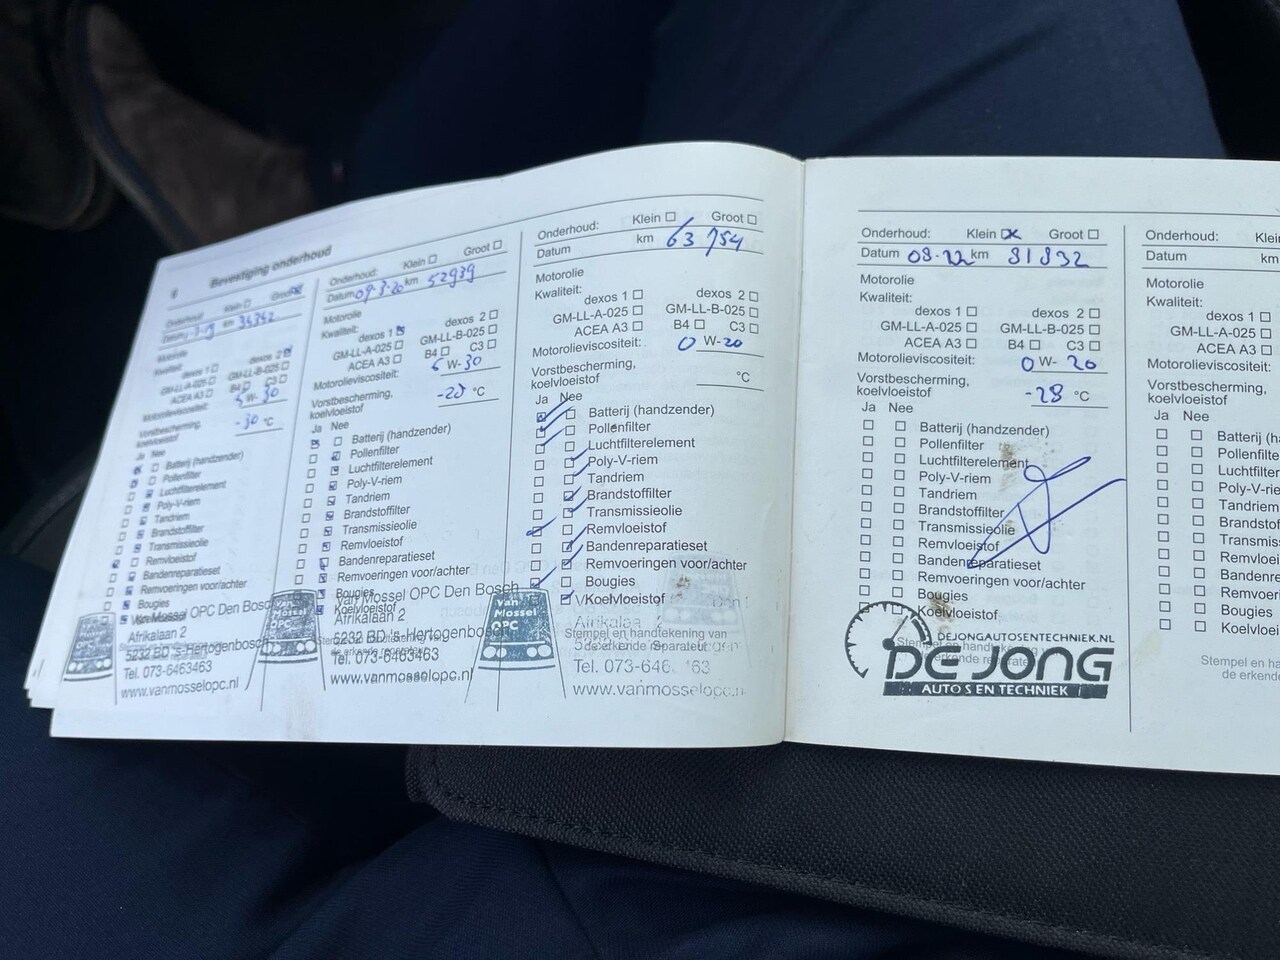 6 Bevestiging onderhoud
Onderhoud: Klein Groot
km 34342
Motorolie
Kwaliteit:
dexos 1 dexos 2
GM-LL-A-025 GM-LL-B-025
ACEA A3 B4 C3
Motorolieviscositeit: 5 W- 30
Vorstbescherming,
koelvloeistof -30 °C
Ja Nee
Batterij (handzender)
Pollenfilter
Luchtfilterelement
Poly-V-riem
Tandriem
Brandstoffilter
Transmissieolie
Remvloeistof
Bandenreparatieset
Remvoeringen voor/achter
Bougies
Van Mossel OPC Den Bosch
Afrikalaan 2
5232 BD 's-Hertogenbosch
Tel. 073-6463463
www.vanmosselopc.nl
Onderhoud: Klein Groot
Datum 09-3-20 km 52939
Motorolie
Kwaliteit:
dexos 1 dexos 2
GM-LL-A-025 GM-LL-B-025
ACEA A3 B4 C3
Motorolieviscositeit: 5 W- 30
Vorstbescherming,
koelvloeistof °C
Ja Nee
Batterij (handzender)
Pollenfilter
Luchtfilterelement
Poly-V-riem
Tandriem
Brandstoffilter
Transmissieolie
Remvloeistof
Bandenreparatieset
Remvoeringen voor/achter
Bougies
Koelvloeistof
Van Mossel OPC Den Bosch
Afrikalaan 2
5232 BD 's-Hertogenbosch
Tel. 073-6463463
www.vanmosselopc.nl
Onderhoud: Klein Groot
Datum km 63 754
Motorolie
Kwaliteit:
dexos 1 dexos 2
GM-LL-A-025 GM-LL-B-025
ACEA A3 B4 C3
Motorolieviscositeit: 0 W- 20
Vorstbescherming,
koelvloeistof °C
Ja Nee
Batterij (handzender)
Pollenfilter
Luchtfilterelement
Poly-V-riem
Tandriem
Brandstoffilter
Transmissieolie
Remvloeistof
Bandenreparatieset
Remvoeringen voor/achter
Bougies
Koelvloeistof
Van Mossel OPC
Afrikalaan 2
Stempel en handtekening van
de erkende reparateur
Tel. 073-646
www.vanmosselopc.n
Onderhoud: Klein Groot
Datum 08-22 km 81832
Motorolie
Kwaliteit:
dexos 1 dexos 2
GM-LL-A-025 GM-LL-B-025
ACEA A3 B4 C3
Motorolieviscositeit: 0 W- 20
Vorstbescherming,
koelvloeistof -28 °C
Ja Nee
Batterij (handzender)
Pollenfilter
Luchtfilterelement
Poly-V-riem
Tandriem
Brandstoffilter
Transmissieolie
Remvloeistof
Bandenreparatieset
Remvoeringen voor/achter
Bougies
Koelvloeistof
DEJONGAUTOSENTECHNIEK.NL
DE JONG
AUTO'S EN TECHNIEK
Onderhoud: Klei
Datum km
Motorolie
Kwaliteit:
dexos 1
GM-LL-A-025
ACEA A3
Motorolieviscositeit:
Vorstbescherming,
koelvloeistof
Ja Nee
Batterij (h
Pollenfilte
Luchtfilte
Poly-V-rie
Tandriem
Brandsto
Transmis
Remvloei
Bandenre
Remvoer
Bougies
Koelvloei
Stempel en ha
de erkende